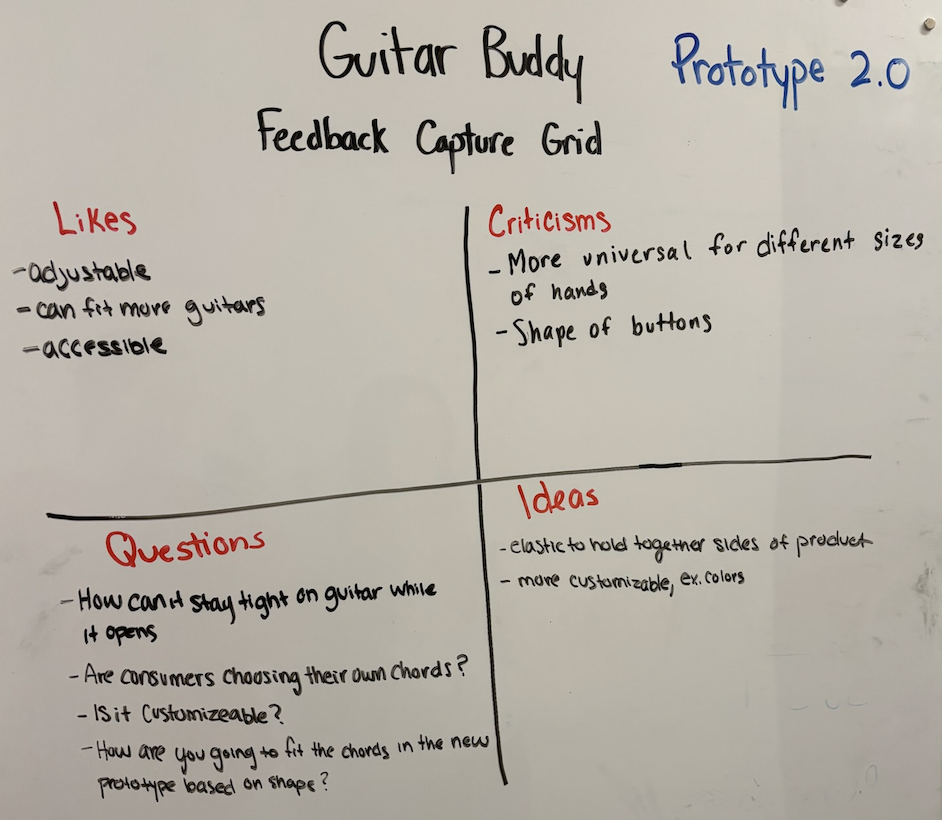 Guitar Buddy
Prototype 2.0
Feedback Capture Grid
Likes
- adjustable
- can fit more guitars
- accessible
Criticisms
- More universal for different sizes
of hands
- Shape of buttons
Questions
- How can it stay tight on guitar while
it opens
- Are consumers choosing their own chords?
- Is it customizeable?
- How are you going to fit the chords in the new
prototype based on shape?
Ideas
- elastic to hold together sides of product
- more customizable, ex. colors